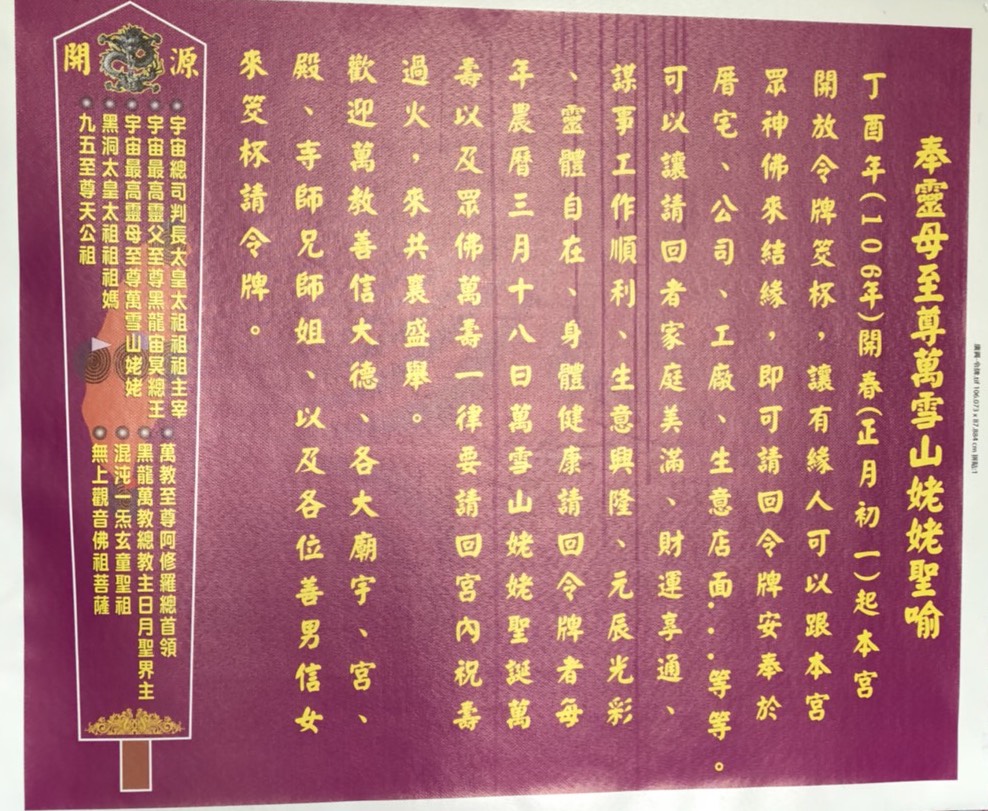 奉靈母至尊萬雪山姥姥聖喻
丁酉年(106年)開春(正月初一)起本宮
開放令牌筊杯，讓有緣人可以跟本宮
眾神佛來結緣，即可請回令牌安奉於
厝宅、公司、工廠、生意店面...等等。
可以讓請回者家庭美滿、財運享通、
謀事工作順利、生意興隆、元辰光彩
、靈體自在、身體健康請回令牌者每
年農曆三月十八日萬雪山姥姥聖誕萬
壽以及眾佛萬壽一律要請回宮內祝壽
過火，來共襄盛舉。
歡迎萬教善信大德、各大廟宇、宮、
殿、寺師兄師姐、以及各位善男信女
來筊杯請令牌。
開 源
宇宙總司判長太皇太祖祖祖主宰
宇宙最高靈父至尊黑龍宙冥總王
宇宙最高靈母至尊萬雪山姥姥
黑洞太皇太祖祖祖媽
九五至尊天公祖
萬教至尊阿修羅總首領
黑龍萬教總教主日月聖界主
混沌一炁玄童聖祖
無上觀音佛祖菩薩